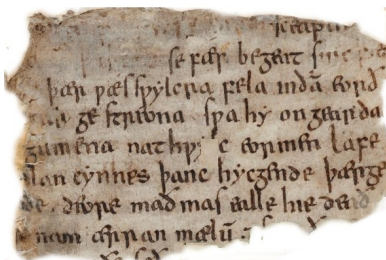 se fær begeat sinc fæ
þær ƿæs sƿylcra fela indā eorð
ge streona sƿa hy on gearda
gumena nat hƿy c eormen lafe
lan cynnes þanc hycgende þærge
de. deore mað mas ealle hie deað
nam ærran mælū